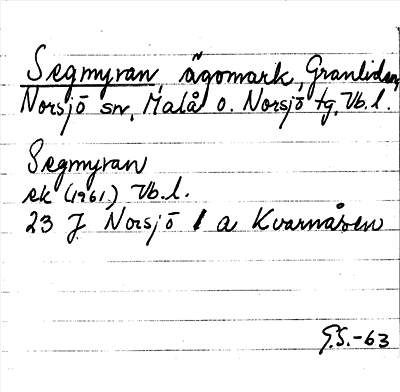 Segmyran, ägomark, Granliden,
Norsjö sn, Malå o. Norsjö tg, Vb.l.
Segmyran
ek (1961) Vb.l.
23 J Norsjö 1 a Kvarnåsen
G.S.-63